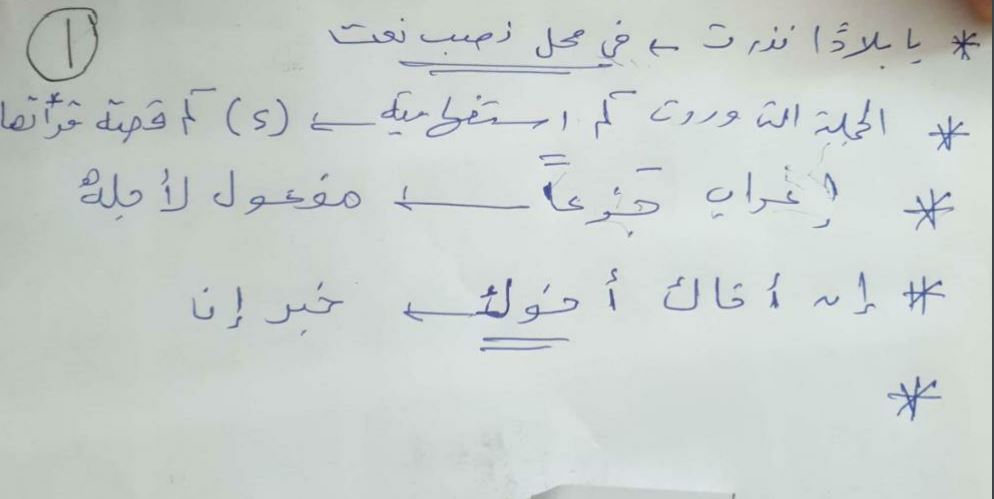 ①
* يا بلادًا نذرت ← في محل نصب نعت
* الجملة التي وردت كم استفهامية ← (د) كم قصة قرأتها
* إعراب جزعاً ← مفعول لأجله
* إن أخاك أخوك ← خبر إن
*